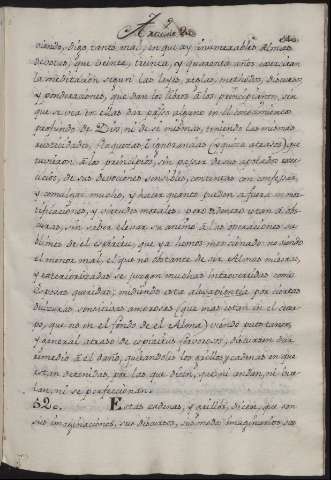 viendo, digo tanto mal, en que ay innumerables Almas
devotas, que veinte, treinta, y quarenta años exercitan
la meditacion segun las leyes, reglas, methodos, discursos
y ponderaciones, que dan los libros à los principiantes, sin
que se vea en ellas dar passo alguno en el conocimiento
profundo de Dios, ni de si mismas, teniendo las mismas
rusticidades, flaquezas, è ignorancias (y quiza atrasos) que
tuvieron à los principios, sin passar de sus apetecidos
de sus devociones sensibles, contentas con confessar,
y comulgar mucho, y hacer quanto pueden à fuera en mor-
tificaciones, y virtudes morales; pero adentro estan à obs-
curas, sin saber elevar su animo à las operaciones su-
blimes de el espiritu, que ya hemos mencionado: no siendo
el menor mal, el que no obstante de ser Almas
y exteriorizadas se juzgan muchas introvertidas como
Esposas queridas; midiendo esta por ciertas
dulzuras sensitivas amorosas (que mas estan en el cuer-
po, que no en el fondo de el Alma) siendo pues tanto,
y general atraso de espiritus fervorosos, discurren dar
remedio à el daño, quitandolos los grillos y cadenas en que
estan detenidas, por las que dicen, que ni andan, ni bue-
lan, ni se perfeccionan.
520. Estas cadenas, y grillos, dicen, que son
sus imaginaciones, sus discursos, sus modos imaginarios sen-